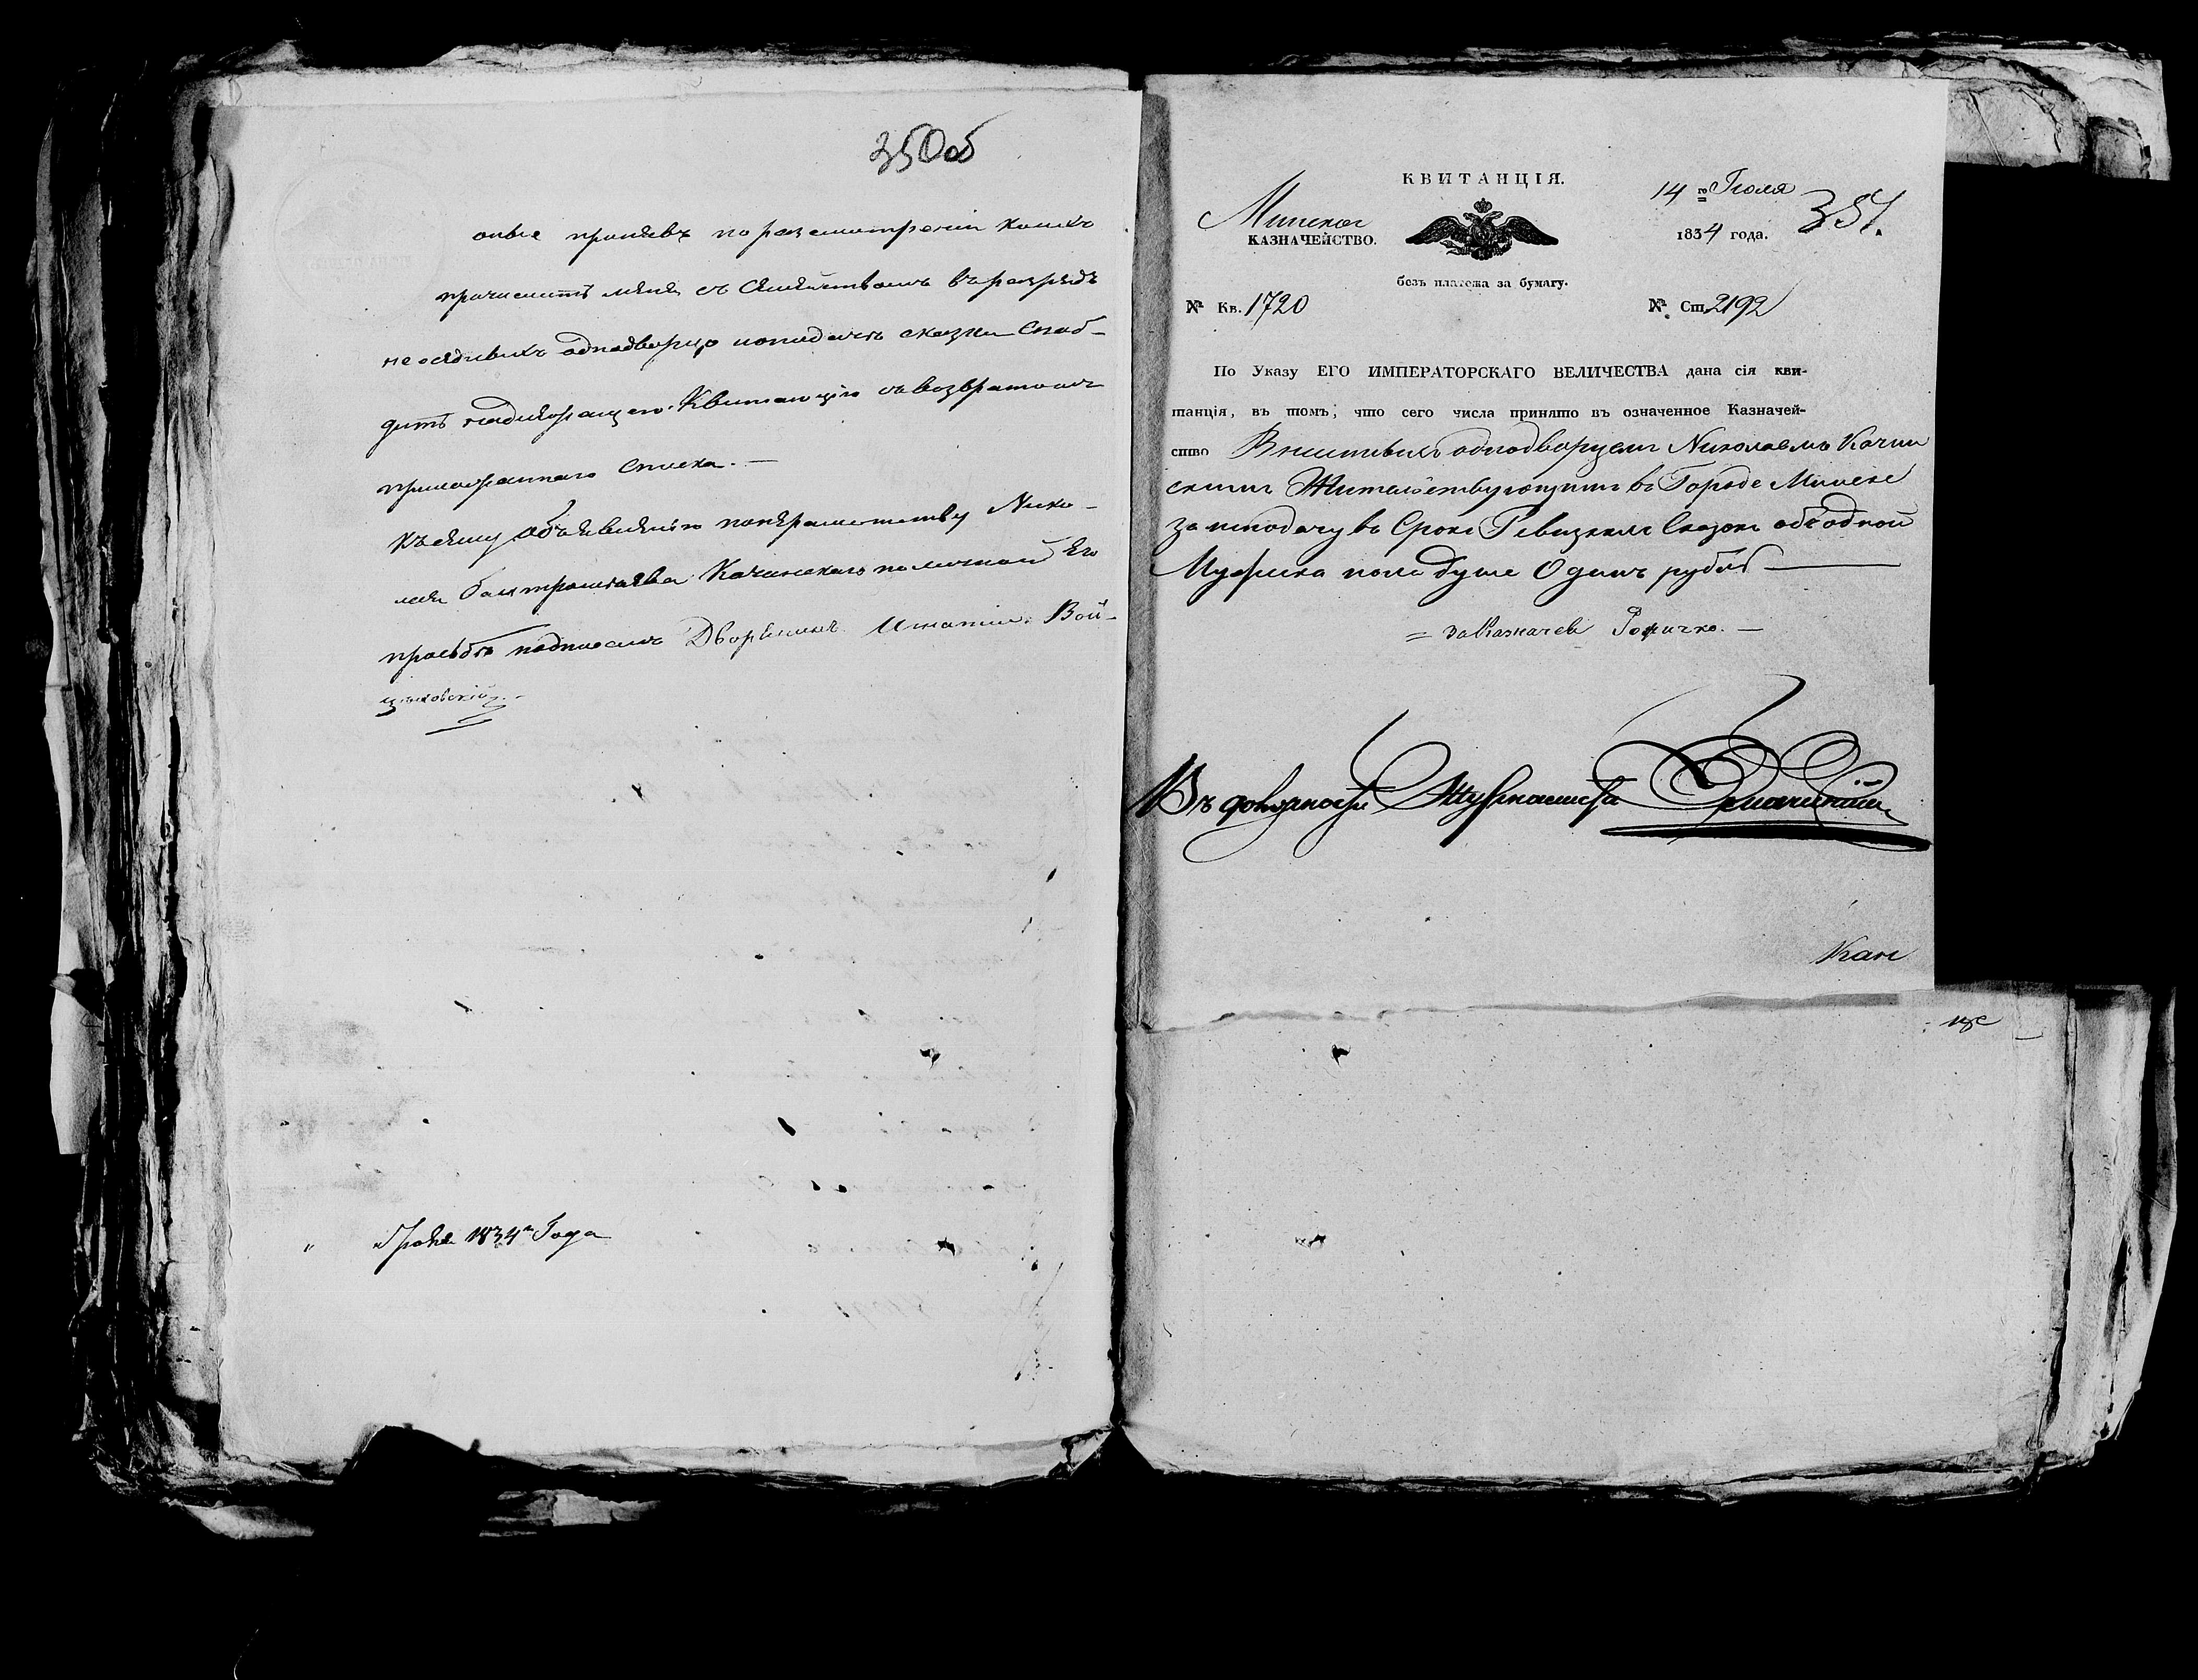 350об
оные принявъ по разсмотреніи коихъ
причислить меня съ Семействомъ въ разрядъ
неоседлыхъ однодворцо и о подачи сказки Снаб-
дить надлежащею Квитанціею съ возвратомъ
приложеннаго Списка. —
Къ сему объявленію понеграмотству Нико-
лая Качинскаго по личной Его
прозьбѣ подписалъ Дворянинъ Игнатій Вой-
цѣховскій
1834го Года
КВИТАНЦІЯ.
14го Іюля
351.
Минское
КАЗНАЧЕЙСТВО.
1834 года.
безъ платежа за бумагу.
№ Кв. 1720
№ Ст. 2192
По Указу ЕГО ИМПЕРАТОРСКАГО ВЕЛИЧЕСТВА дана сія кви-
танція, въ томъ, что сего числа принято въ означенное Казначей-
ство однодворцемъ Николаемъ Качин
скимъ Жительствующимъ въ Городе Минске
за неподачу въ Срокъ Ревизкихъ Сказокъ объ одной
Мужеска пола душе Одинъ рубль —
= за Казначея —
Въ должности Журналиста